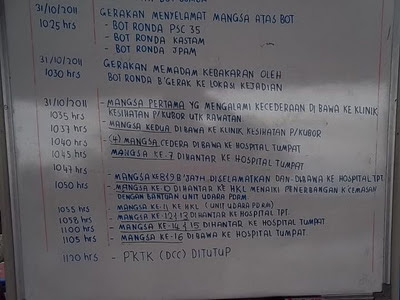 31/10/2011 GERAKAN MENYELAMAT MANGSA ATAS BOT
1025 hrs - BOT RONDA PSC 35
- BOT RONDA KASTAM
- BOT RONDA JPAM
31/10/2011 GERAKAN MEMADAM KEBAKARAN OLEH
1030 hrs BOT RONDA B'GERAK KE LOKASI KEJADIAN
31/10/2011 - MANGSA PERTAMA YG MENGALAMI KECEDERAAN DI BAWA KE KLINIK
1035 hrs KESIHATAN P/KUBOR UTK RAWATAN
1037 hrs - MANGSA KEDUA DI BAWA KE KLINIK KESIHATAN P/KUBOR
1040 hrs - (4) MANGSA CEDERA DI BAWA KE HOSPITAL TUMPAT
1045 hrs MANGSA KE-7 DIHANTAR KE HOSPITAL TUMPAT
1047 hrs - MANGSA KE 8 B'JAYA DISELAMATKAN DAN DIBAWA KE HOSPITAL TPT
1050 hrs - MANGSA KE 10 DIHANTAR KE HKL MENAIKI PENERBANGAN KECEMASAN
DENGAN BANTUAN UNIT UDARA PDRM
1055 hrs - MANGSA KE-11 KE HKL (UNIT UDARA PDRM)
1058 hrs - MANGSA KE-12 & 13 DIHANTAR KE HOSPITAL TPT
1100 hrs - MANGSA KE-14 & 15 DIHANTAR KE HOSPITAL TUMPAT
1105 hrs - MANGSA KE-16 DIBAWA KE HOSPITAL TUMPAT
1120 hrs - PKTK (DCC) DITUTUP